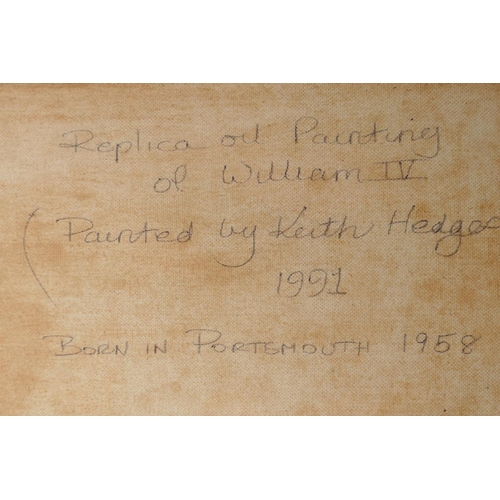 Replica oil Painting
of William IV
(Painted by Keith Hedges
1991
BORN IN PORTSMOUTH 1958